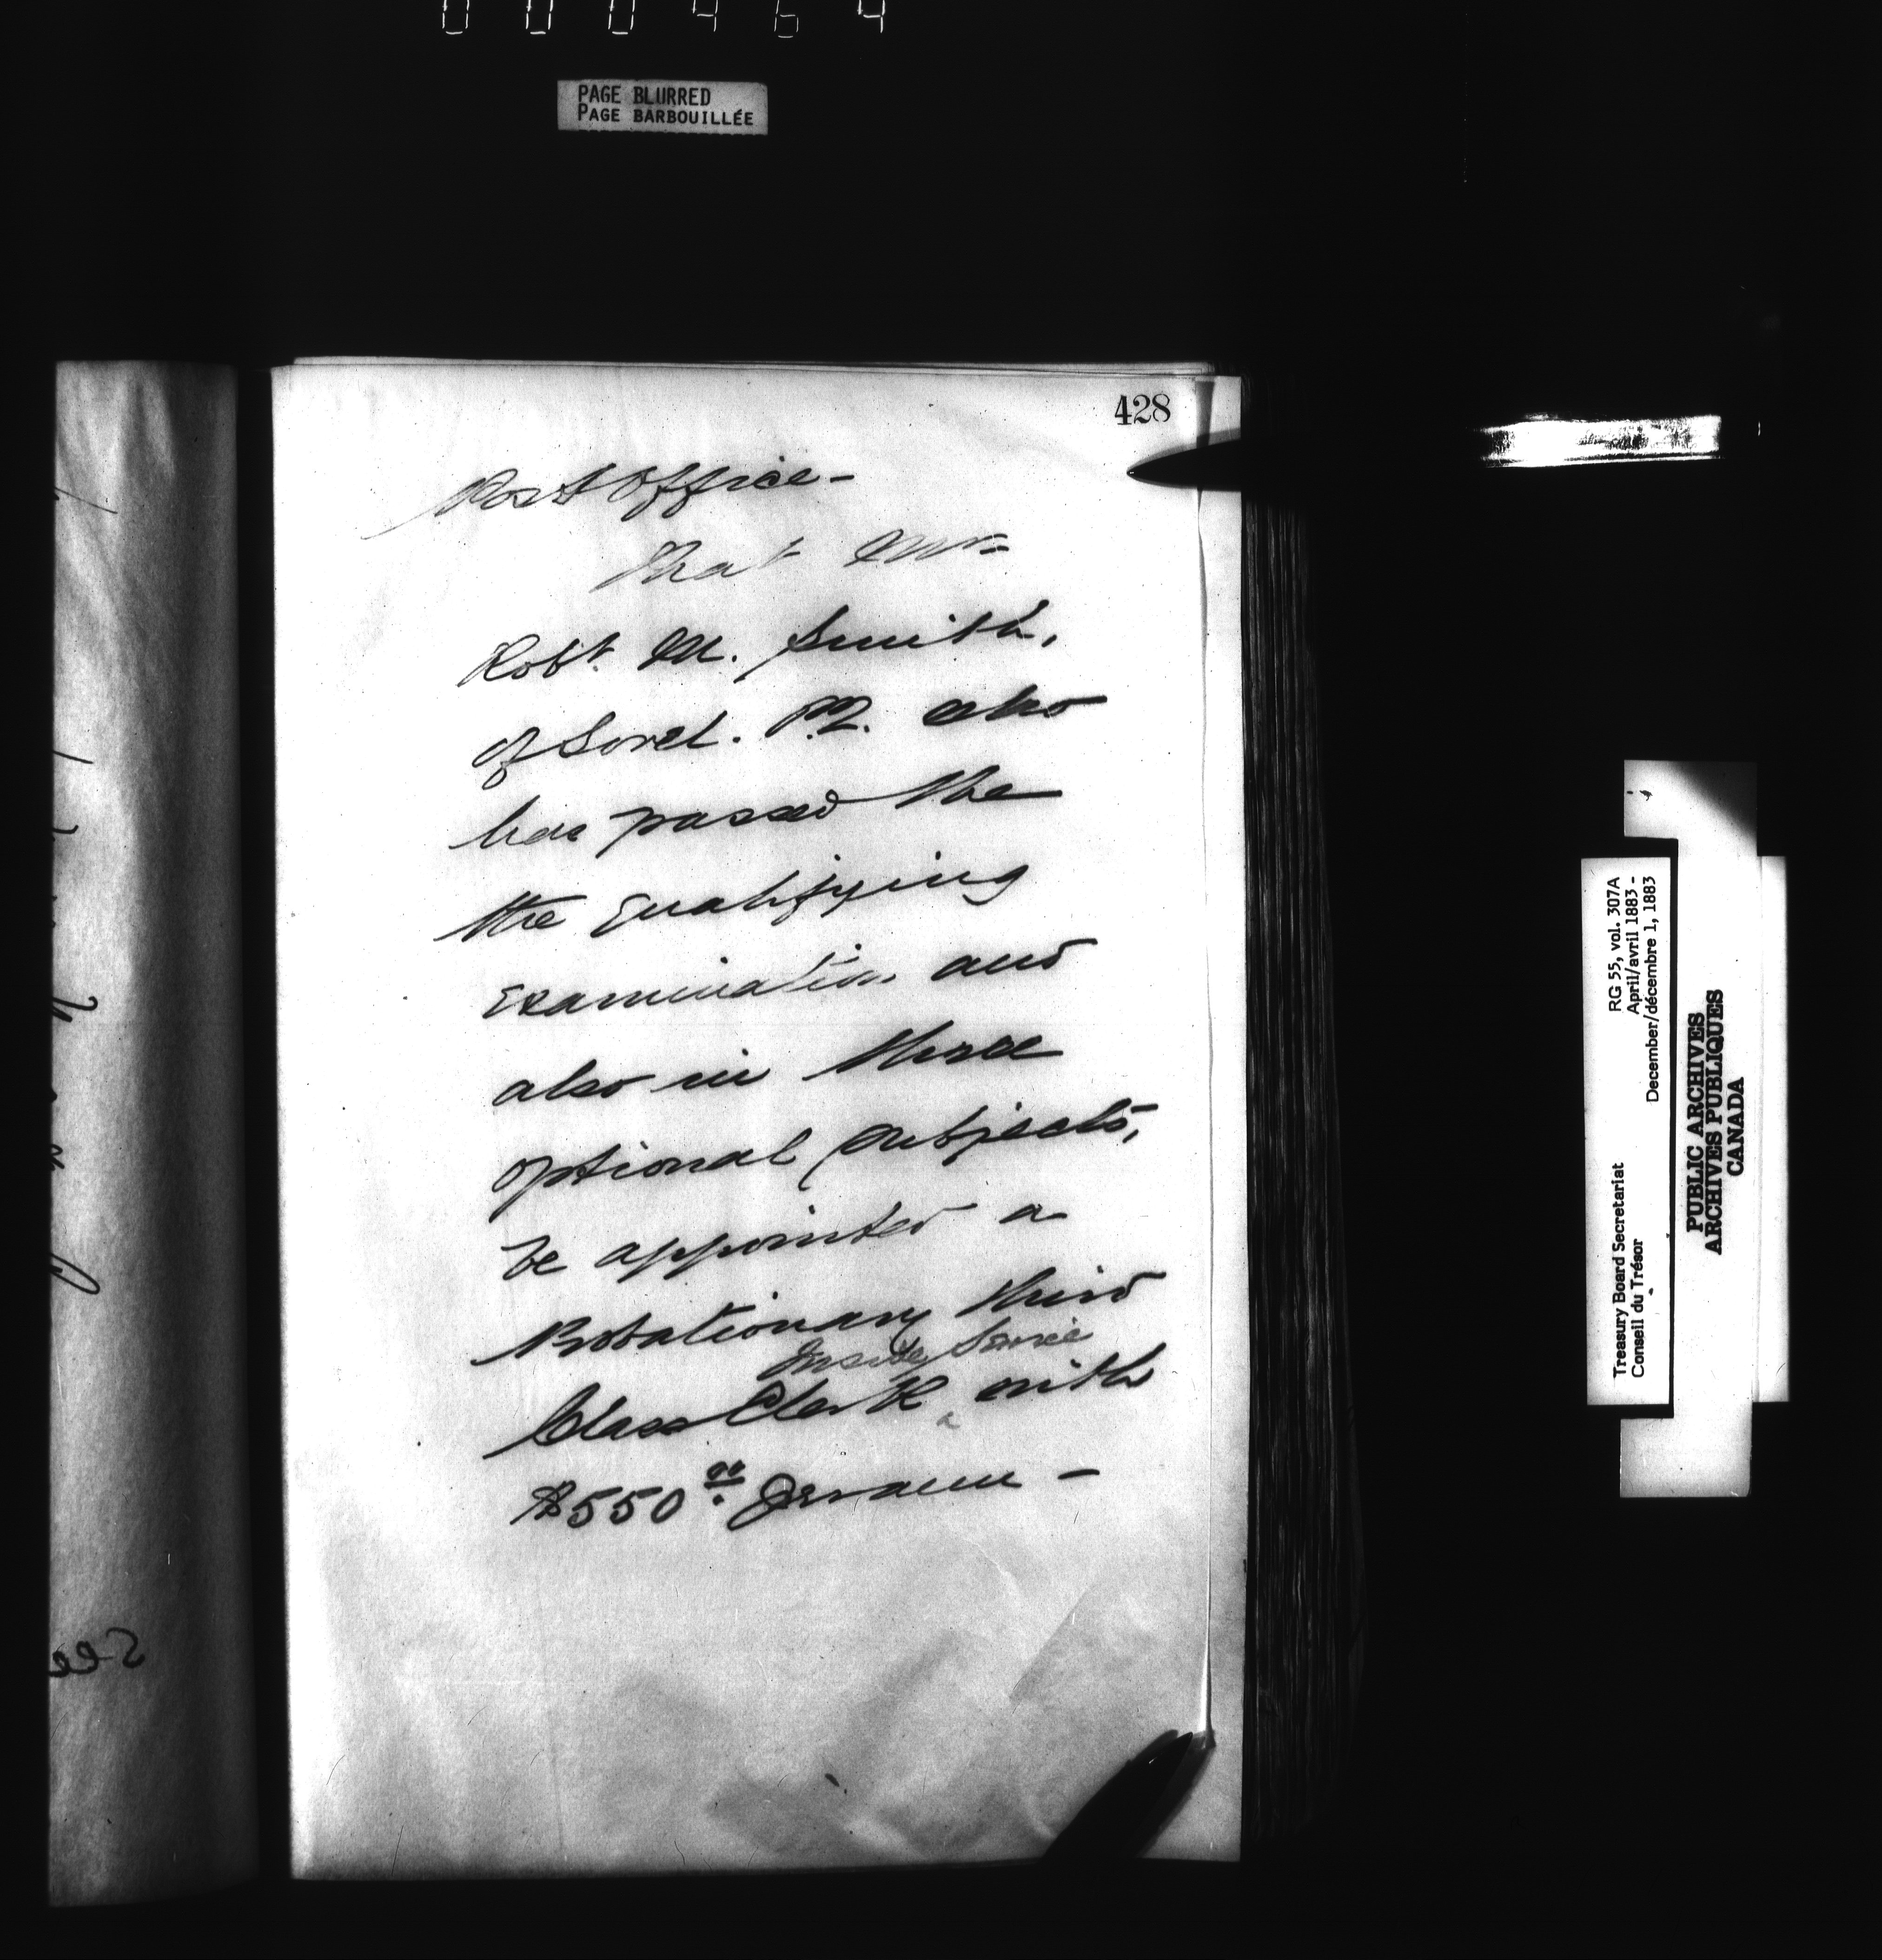 000464
PAGE BLURRED
PAGE BARBOUILLÉE
428
Post Office -
That Mr
Robt. M. Smith,
of Sorel. P.Q. who
has passed the
the Qualifying
Examination and
also in three
optional subjects,
be appointed a
Probationary third
Inside Service
Class Clerk ‸ with
$550.00 per ann -
See
Treasury Board Secretariat RG 55, vol. 307A
Conseil du Trésor April/avril 1883 -
December/décembre 1, 1883
PUBLIC ARCHIVES
ARCHIVES PUBLIQUES
CANADA